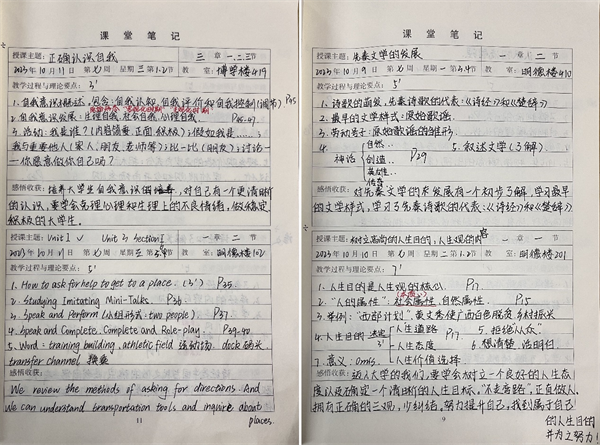 课堂笔记
授课主题: 正确认识自我 三章一.二.三节
2023年10月11日第七周 星期三 1.2节 教室: 博学楼419
教学过程与理论要点: 3'
1. 自我意识概述,包含:自我认知、自我评价和自我控制(调节) P45
2. 自我意识发展:生理自我、社会自我、心理自我. P45-49.
3. 活动:我是谁?(内容简要 正面 积极);假如我是……;
我与重要他人(家人、朋友、老师等);比一比(朋友);讨论一
一你愿意做你自己吗?
感悟收获: 培养大学生自我意识的,对自己有个更清晰的
的认识,要学会处理心理和生理上的不良情绪,做稳定
积极的大学生.
授课主题: Unit 1 ✓ Unit 3 Section I 一章二节
2023年10月11日第七周 星期三 3.4节 教室: 明德楼102
教学过程与理论要点: 5'
1. How to ask for help to get to a place. (3') P35.
2. Studying Imitating Mini-Talks. P36
3. Speak and Perform (小组形式: two people) P37.
4. Speak and Complete. Complete and Role-play. P39.40.
5. Word: training building, athletic field 运动场 dock 码头
transfer channel 换乘
感悟收获:
We review the methods of asking for directions. And
we can understand transportation tools and inquire about
places.
课堂笔记
授课主题: 先秦文学的发展 一章二节
2023年10月9日第七周 星期一 3.4节 教室: 明德楼410
教学过程与理论要点:
1. 诗歌的萌发,先秦诗歌的代表:《诗经》和《楚辞》
2. 最早的文学样式:原始歌谣.
3. 劳动号子:原始歌谣的雏形
4. 神话 自然.. 创造.. 英雄.. 传奇 P29
5. 叙述文学(了解).
感悟收获: 对先秦文学的发展有个初步了解,学习最早
的文学样式,学习了先秦诗歌的代表:《诗经》和《楚辞》
授课主题: 树立高尚的人生目的,人生观的内容 一章一节
2023年10月10日第七周 星期二 1.2节 教室: 明德楼201
教学过程与理论要点: 7'
1. 人生目的是人生观的核心. P17.
2. "人的属性": 社会属性(本质), 自然属性. P15
3. 举例:"西部计划" 黄文秀使广西白色脱贫 乡村振兴
4. 人生目的 决定 人生道路 人生态度 人生价值选择 P17
5. 拒绝从众"
6. 想清楚,活明白.
7. 意义:
感悟收获: 迈入大学的我们,要学会树立一个良好的人生态
度以及确定一个清晰的人生目标,"不走弯路",正直做人.
拥有正确的三观,少纠结,努力提升自己,找到属于自己
的人生目的
并为之努力!
9